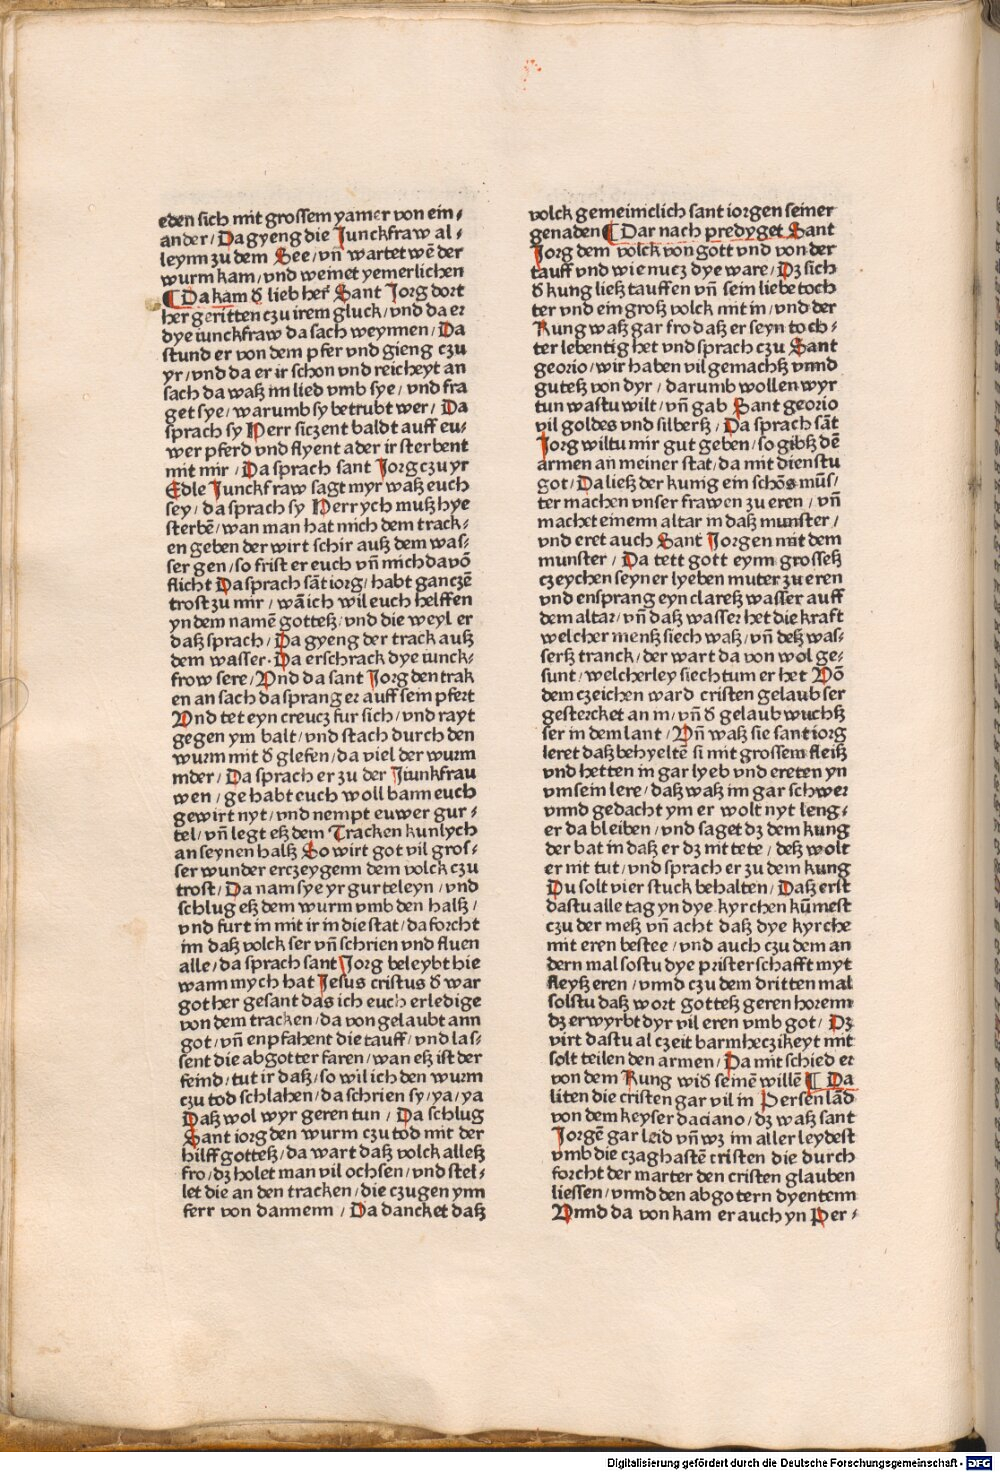 eden sich mit grossem yamer von ein⸗
ander / Da gyeng die Junckfraw al⸗
leynn zu dem See / vn̄ wartet wē der
wurm kam / vnd weinet yemerlichen
¶ Da kam ð lieb her̄ Sant Jorg dort
her geritten czu irem gluck / vnd da er
dye iunckfraw da sach weynnen / Da
stund er von dem pfer vnd gieng czu
yr / vnd da er ir schon vnd reicheyt an
sach da waß im lied vmb sye / vnd fra
get sye / warumb sy betrubt wer / Da
sprach sy Herr siczent baldt auff eu⸗
wer pferd vnd flyent ader ir sterbent
mit mir / Da sprach sant Jorg czu yr
Edle Junckfraw sagt myr waß euch
sey / da sprach sy Herr ych muß hye
sterbē / wan man hat mich dem track⸗
en geben der wirt schir auß dem was⸗
ser gen / so frist er euch vn̄ mich da vō
flicht Da sprach sāt iorg / habt ganczē
trost zu mir / wā ich wil euch helffen
yn dem namē gotteß / vnd die weyl er
daß sprach / Da gyeng der track auß
dem wasser. Da erschrack dye iunck⸗
frow sere / Vnd da sant Jorg den trak
en an sach da sprang er auff sein pfert
Vnd tet eyn creucz fur sich / vnd rayt
gegen ym balt / vnd stach durch den
wurm mit ð glefen / da viel der wurm
nider / Da sprach er zu der Jiunkfrau
wen / ge habt euch woll bann euch
gewirt nyt / vnd nempt euwer gur⸗
tel / vn̄ legt eß dem Tracken kunlych
an seynen halß So wirt got vil gros⸗
ser wunder erczeygenn dem volck czu
trost / Da nam sye yr gurteleyn / vnd
schlug eß dem wurm vmb den halß /
vnd furt in mit ir in die stat / da forcht
im daß volck ser vn̄ schrien vnd fluen
alle / da sprach sant Jorg beleybt hie
wann mych hat Jesus cristus ð war
got her gesant das ich euch erledige
von dem tracken / da von gelaubt ann
got / vn̄ enpfahent die tauff / vnd las⸗
sent die abgotter faren / wan eß ist der
feind / tut ir daß / so wil ich den wurm
czu tod schlahen / da schrien sy / ya / ya
Daß wol wyr geren tun / Da schlug
Sant iorg den wurm czu tod mit der
hilff gotteß / da wart daß volck alleß
fro / dz holet man vil ochsen / vnd stel⸗
let die an den tracken / die czugen ynn
ferr von dannenn / Da dancket daß
volck gemeiniclich sant iorgen seiner
genaden ¶ Dar nach predyget Sant
Jorg dem volck von gott vnd von der
tauff vnd wie nucz dye ware / Dz sich
ð kung ließ tauffen vn̄ sein liebe toch
ter vnd ein groß volck mit in / vnd der
Kung waß gar fro daß er seyn toch⸗
ter lebentig het vnd sprach czu Sant
georio / wir haben vil gemachß vnnd
guteß von dyr / darumb wollen wyr
tun was tu wilt / vn̄ gab Sant georio
vil goldes vnd silberß / Da sprach sāt
Jorg wiltu mir gut geben / so gibß dē
armen an meiner stat / da mit dienstu
got / Da ließ der kunig ein schōs mūs /
ter machen vnser frawen zu eren / vn̄
machet einenn altar in daß munster /
vnd eret auch Sant Jorgen mit dem
munster / Da tett gott eynn grosseß
czeychen seyner lyeben muter zu eren
vnd ensprang eyn clareß wasser auff
dem altar / vn̄ daß wasser het die kraft
welcher menß siech waß / vn̄ deß was⸗
serß tranck / der wart da von wol ge⸗
sunt / welcherley siechtum er het Vō
dem czeichen ward cristen gelaub ser
gestercket an in / vn̄ ð gelaub wuchß
ser in dem lant / Vn̄ waß sie sant iorg
leret daß behyeltē si mit grossem fleiß
vnd hetten in gar lyeb vnd ereten yn
vm sein lere / daß waß im gar schwer
vnnd gedacht ym er wolt nyt leng⸗
er da bleiben / vnd saget dz dem kung
der bat in daß er dz nit tete / deß wolt
er nit tut / vnd sprach er zu dem kung
Du solt vier stuck behalten / Daß erst
das tu alle tag yn dye kyrchen kūmest
czu der meß vn̄ acht daß dye kyrche
mit eren bestee / vnd auch czu dem an
dern mal sostu dye pristerschafft myt
fleyß eren / vnnd czu dem dritten mal
solstu daß wort gotteß geren horenn
dz erwyrbt dyr vil eren vmb got / Dz
virt das tu al czeit barmheczikeyt mit
solt teilen den armen / Da mit schied er
von dem Kung wið seinē willē ¶ Da
liten die cristen gar vil in Persen lād
von dem keyser daciano / dz waß sant
Jorgē gar leid vn̄ wz im aller leydest
vmb die czaghastē cristen die durch
forcht der marter den cristen glauben
liessen / vnnd den abgotern dyentenn
Vnnd da von kam er auch yn Per⸗
Digitalisierung gefördert durch die Deutsche Forschungsgemeinschaft - DFG